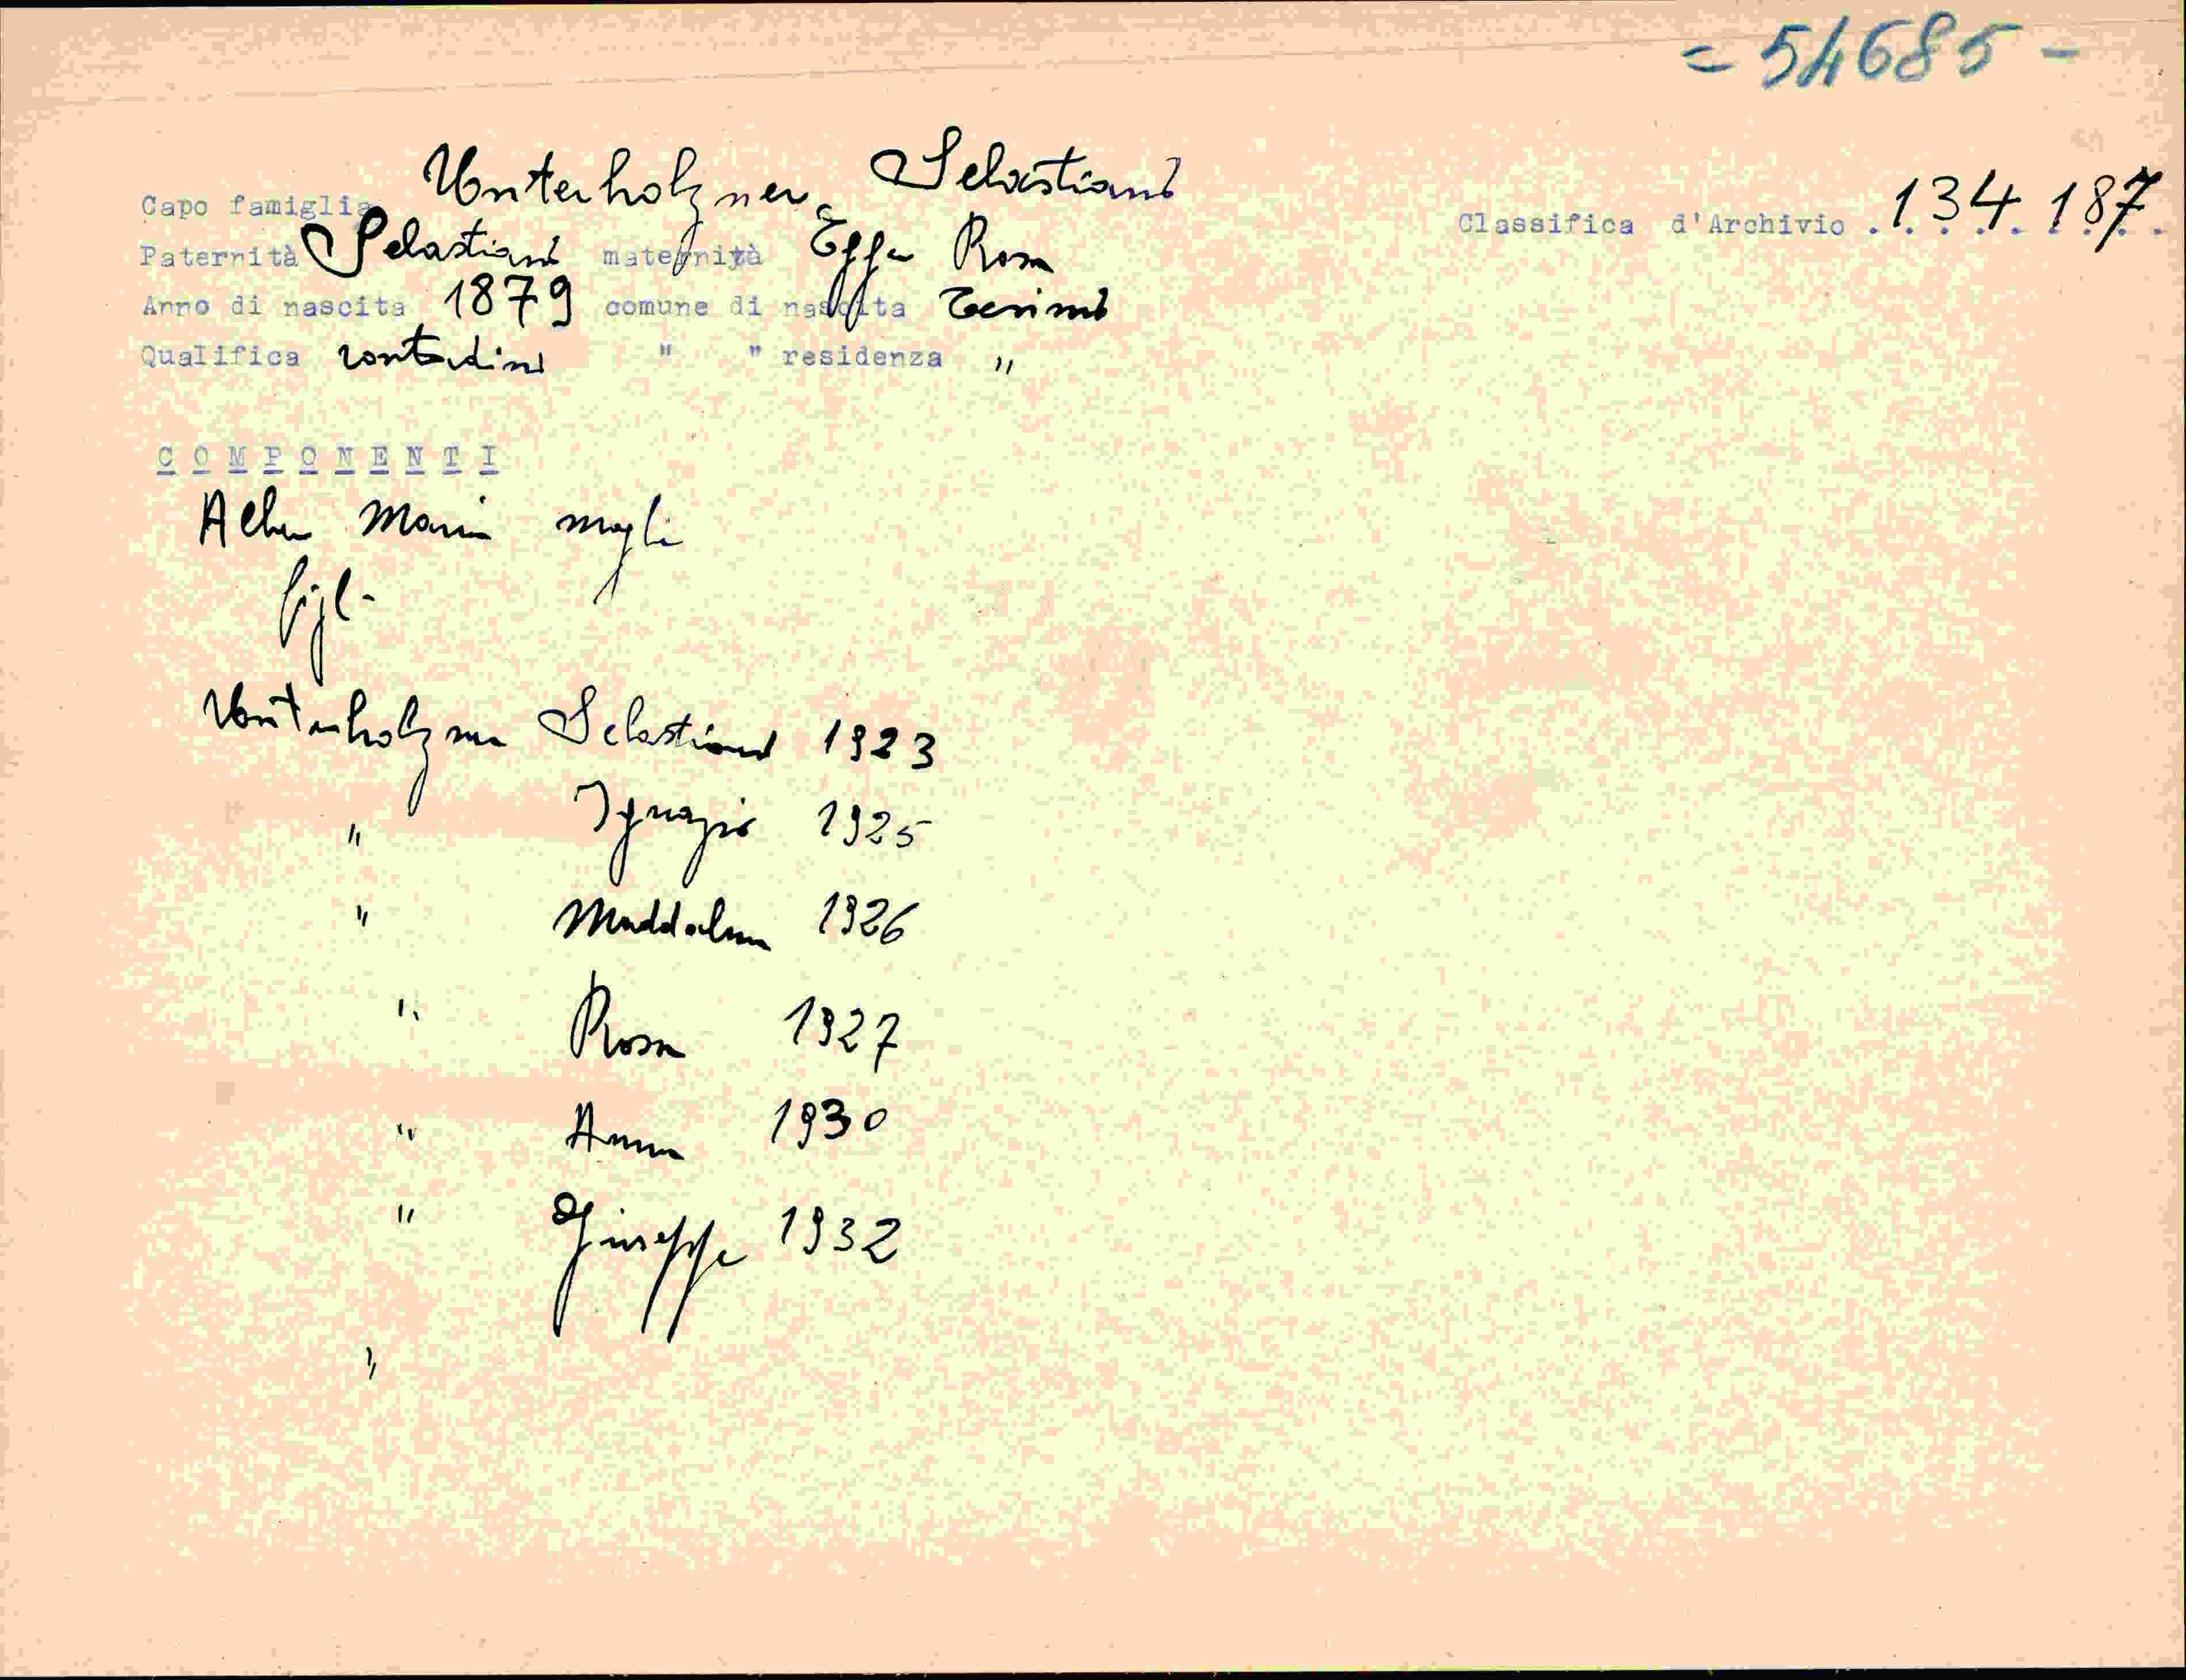 = 54685 -
Capo famiglia Unterholzner Sebastiano
Classifica d'Archivio 134.187
Paternità Sebastiano maternità Egger Rosa
Anno di nascita 1879 comune di nascita Tesimo
Qualifica contadino " " residenza "
COMPONENTI
Maria moglie
figli
Unterholzner Sebastiano 1923
" Ignazio 1925
" Maddalena 1926
" Rosa 1927
" Anna 1930
" Giuseppe 1932
"